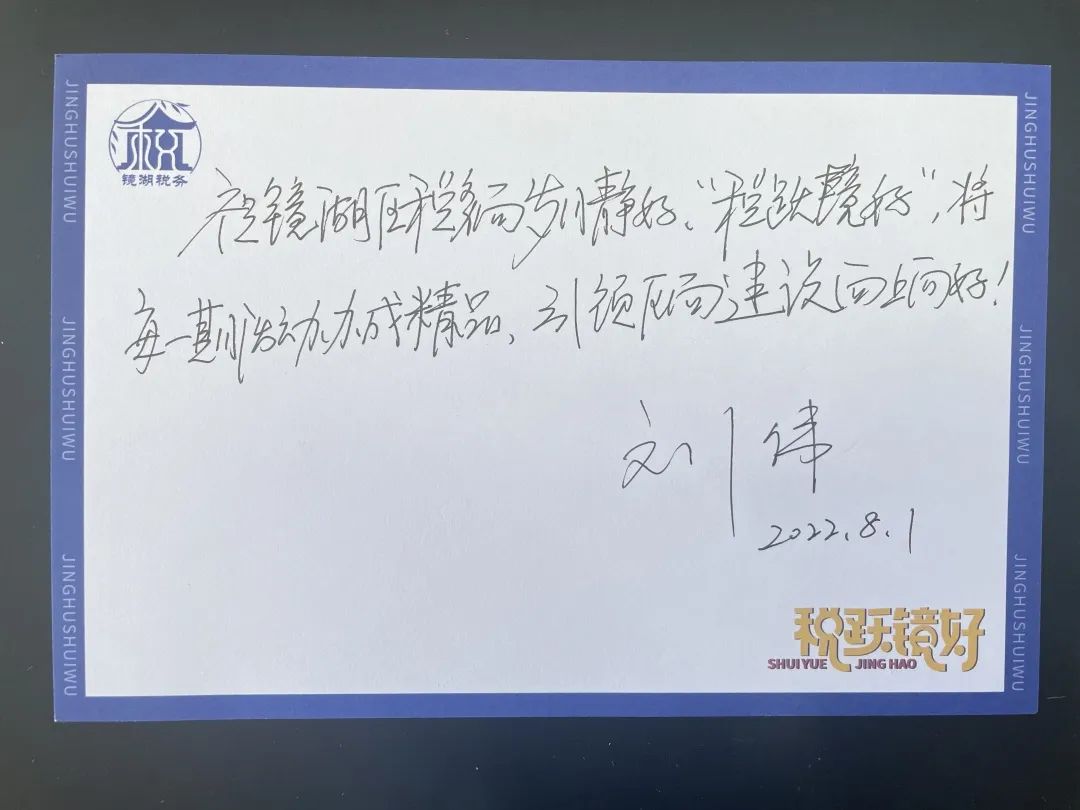 JINGHUSHUIWU
JINGHUSHUIWU
JINGHUSHUIWU
税
镜湖税务
祝镜湖区税务局岁月静好、“税跃镜好”，将
每一期活动办成精品，引领区局建设向上向好！
刘伟
2022.8.1
税跃镜好
SHUI YUE JING HAO
JINGHUSHUIWU
JINGHUSHUIWU
JINGHUSHUIWU